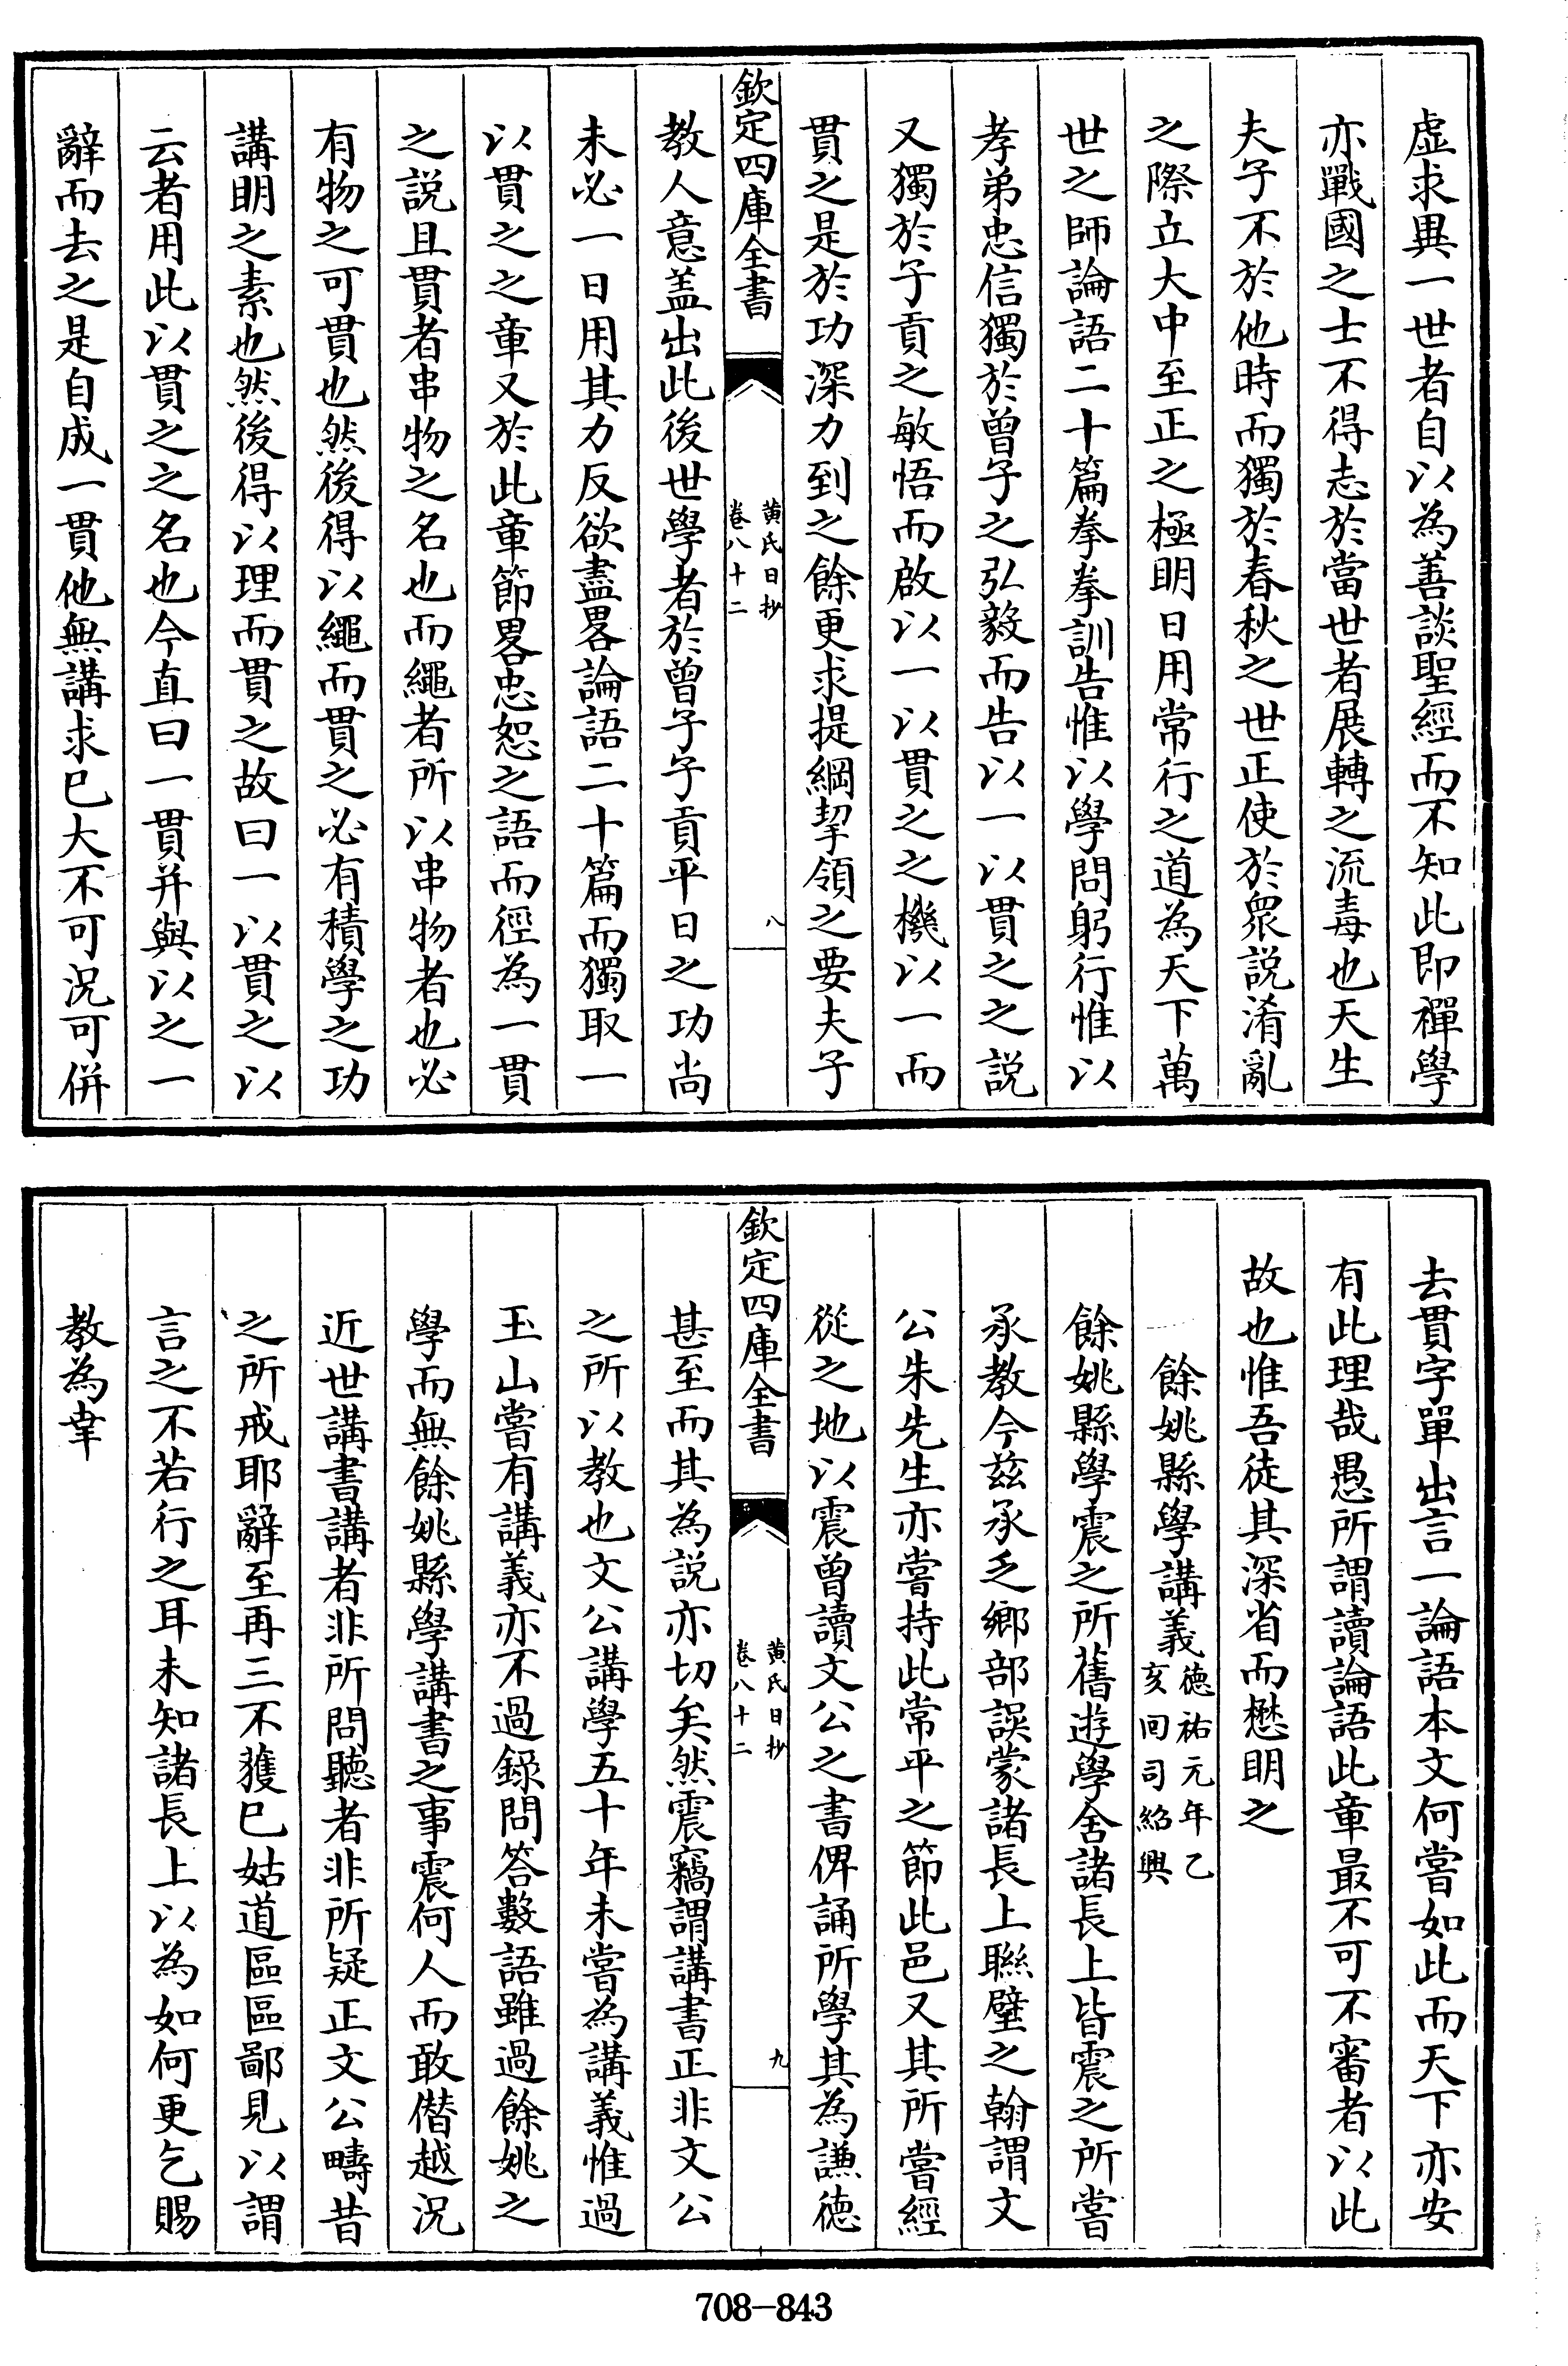 虚求異一世者自以為善談聖經而不知此即禪學
亦戰國之士不得志於當世者展轉之流毒也天生
夫子不於他時而獨於春秋之世正使於衆説淆亂
之際立大中至正之極明日用常行之道為天下萬
世之師論語二十篇拳拳訓告惟以學問躬行惟以
孝弟忠信獨於曾子之弘毅而告以一以貫之之説
又獨於子貢之敏悟而啟以一以貫之之機以一而
貫之是於功深力到之餘更求提綱挈領之要夫子
欽定四庫全書
黄氏日抄
卷八十二
八
教人意盖出此後世學者於曾子子貢平日之功尚
未必一日用其力反欲盡畧論語二十篇而獨取一
以貫之之章又於此章節畧忠恕之語而徑為一貫
之説且貫者串物之名也而繩者所以串物者也必
有物之可貫也然後得以繩而貫之必有積學之功
講明之素也然後得以理而貫之故曰一以貫之以
云者用此以貫之之名也今直曰一貫并與以之一
辭而去之是自成一貫他無講求已大不可況可併
去貫字單出言一論語本文何嘗如此而天下亦安
有此理哉愚所謂讀論語此章最不可不審者以此
故也惟吾徒其深省而懋明之
餘姚縣學講義德祐元年乙
亥回司紹興
餘姚縣學震之所舊遊學舍諸長上皆震之所嘗
承教今兹承乏鄉部誤蒙諸長上聯璧之翰謂文
公朱先生亦嘗持此常平之節此邑又其所嘗經
從之地以震曾讀文公之書俾誦所學其為謙德
欽定四庫全書
黄氏日抄
卷八十二
九
甚至而其為説亦切矣然震竊謂講書正非文公
之所以教也文公講學五十年未嘗為講義惟過
玉山嘗有講義亦不過録問答數語雖過餘姚之
學而無餘姚縣學講書之事震何人而敢僭越況
近世講書講者非所問聽者非所疑正文公疇昔
之所戒耶辭至再三不獲已姑道區區鄙見以謂
言之不若行之耳未知諸長上以為如何更乞賜
教為幸
708-843